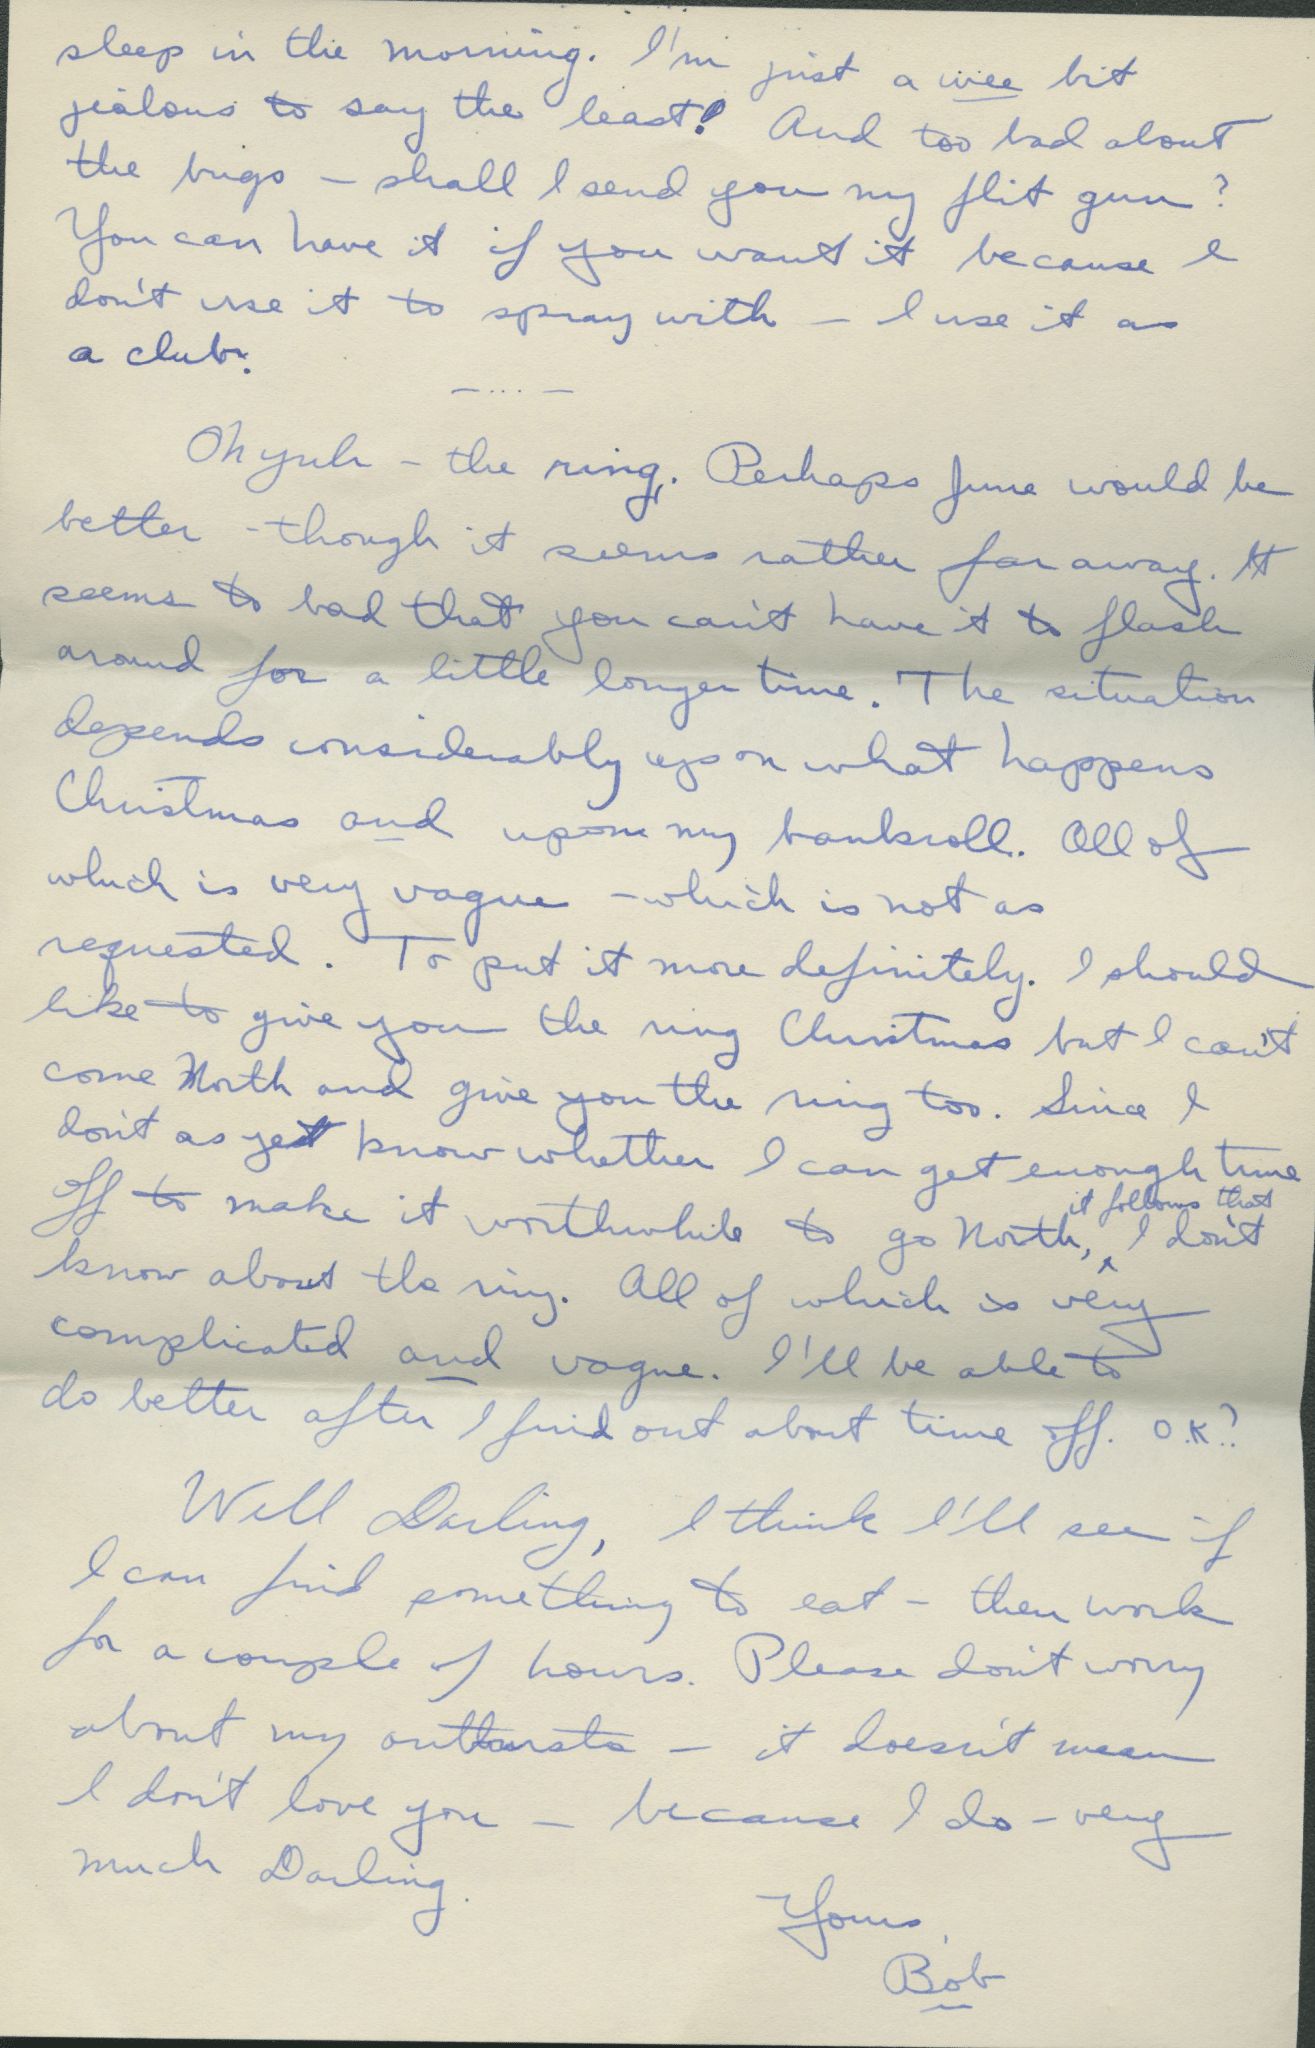 sleep in the morning. I'm just a wee bit
jealous to say the least! And too bad about
the bugs – shall I send you my flit gun?
You can have it if you want it because I
don't use it to spray with – I use it as
a club.
– ... –
Oh yuh – the ring. Perhaps June would be
better - though it seems rather far away. It
seems to bad that you can't have it to flash
around for a little longer time. The situation
depends considerably upon what happens
Christmas and upon my bankroll. All of
which is very vague – which is not as
requested. To put it more definitely. I should
like to give you the ring Christmas but I can't
come North and give you the ring too. Since I
don't as yet know whether I can get enough time
off to make it worthwhile to go North, it follows that I don't
know about the ring. All of which is very
complicated and vague. I'll be able to
do better after I find out about time off. O.K.?
Well Darling, I think I'll see if
I can find something to eat – then work
for a couple of hours. Please don't worry
about my outbursts – it doesn't mean
I don't love you – because I do – very
much Darling.
Yours,
Bob